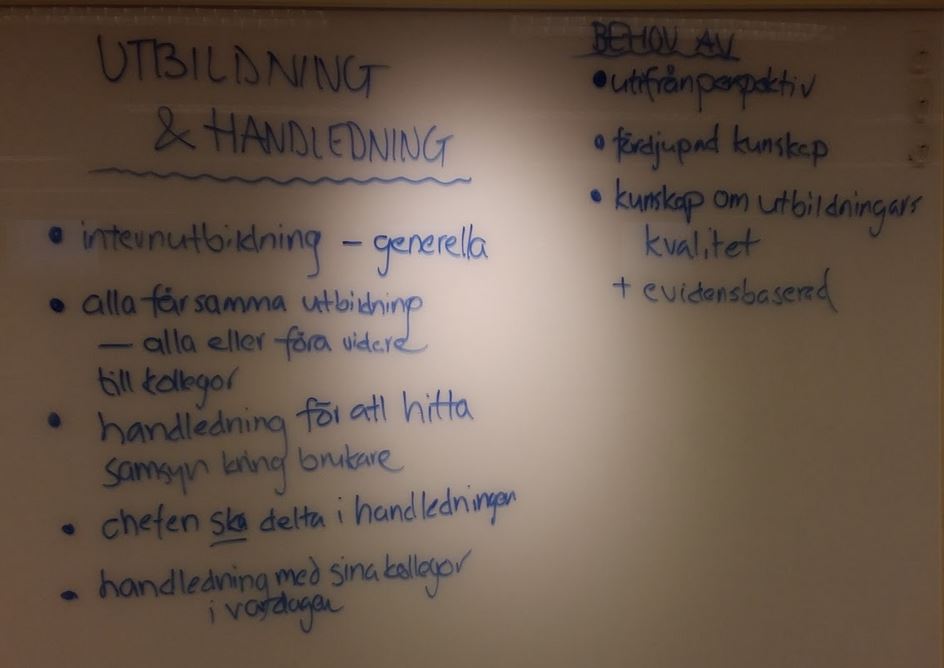 UTBILDNING
& HANDLEDNING
• internutbildning – generella
• alla får samma utbildning
— alla eller föra vidare
till kollegor
• handledning för att hitta
samsyn kring brukare
• chefen ska delta i handledningen
• handledning med sina kollegor
i vardagen
BEHOV AV
• utifrånperspektiv
• fördjupad kunskap
• kunskap om utbildningars
kvalitet
+ evidensbaserad